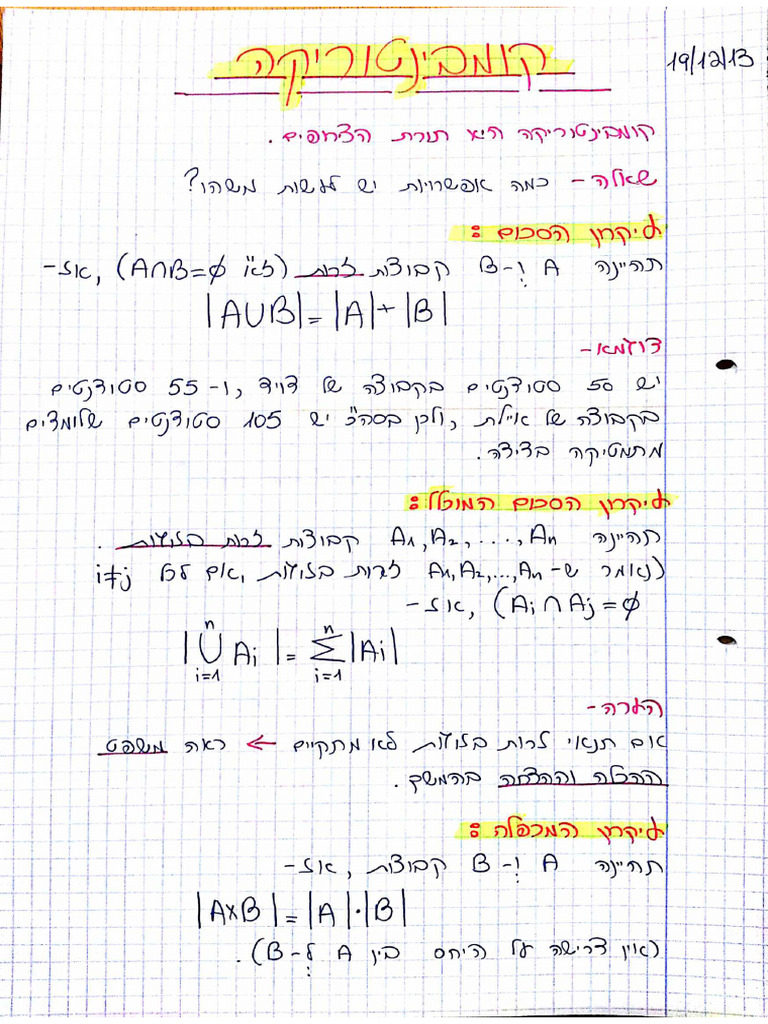 19/12/13
קומבינטוריקה
קומבינטוריקה היא תורת הצירופים.
שאלה - כמה אפשרויות יש לעשות משהו?
עיקרון הסכום:
תהיינה A ו-B קבוצות זרות (ז"א A∩B=∅), אז-
|A∪B|=|A|+|B|
דוגמא-
יש 50 סטודנטים בקבוצה של דויד, ו-55 סטודנטים
בקבוצה של איילת, ולכן בסה"כ יש 105 סטודנטים שלומדים
מתמטיקה בדידה.
עיקרון הסכום המוכלל:
תהיינה A₁,A₂,...,Aₙ קבוצות זרות בזוגות.
(נאמר ש-A₁,A₂,...,Aₙ זרות בזוגות, אם לכל i≠j
Aᵢ∩Aⱼ=∅), אז-
|⋃ᵢ₌₁ⁿ Aᵢ| = ∑ᵢ₌₁ⁿ |Aᵢ|
הערה-
אם תנאי לזרות בזוגות לא מתקיים ← ראה משפט
ההכלה וההדחה בהמשך.
עיקרון המכפלה:
תהיינה A ו-B קבוצות, אז-
|A×B|=|A|·|B|
(אין דרישה על היחס בין A ל-B).